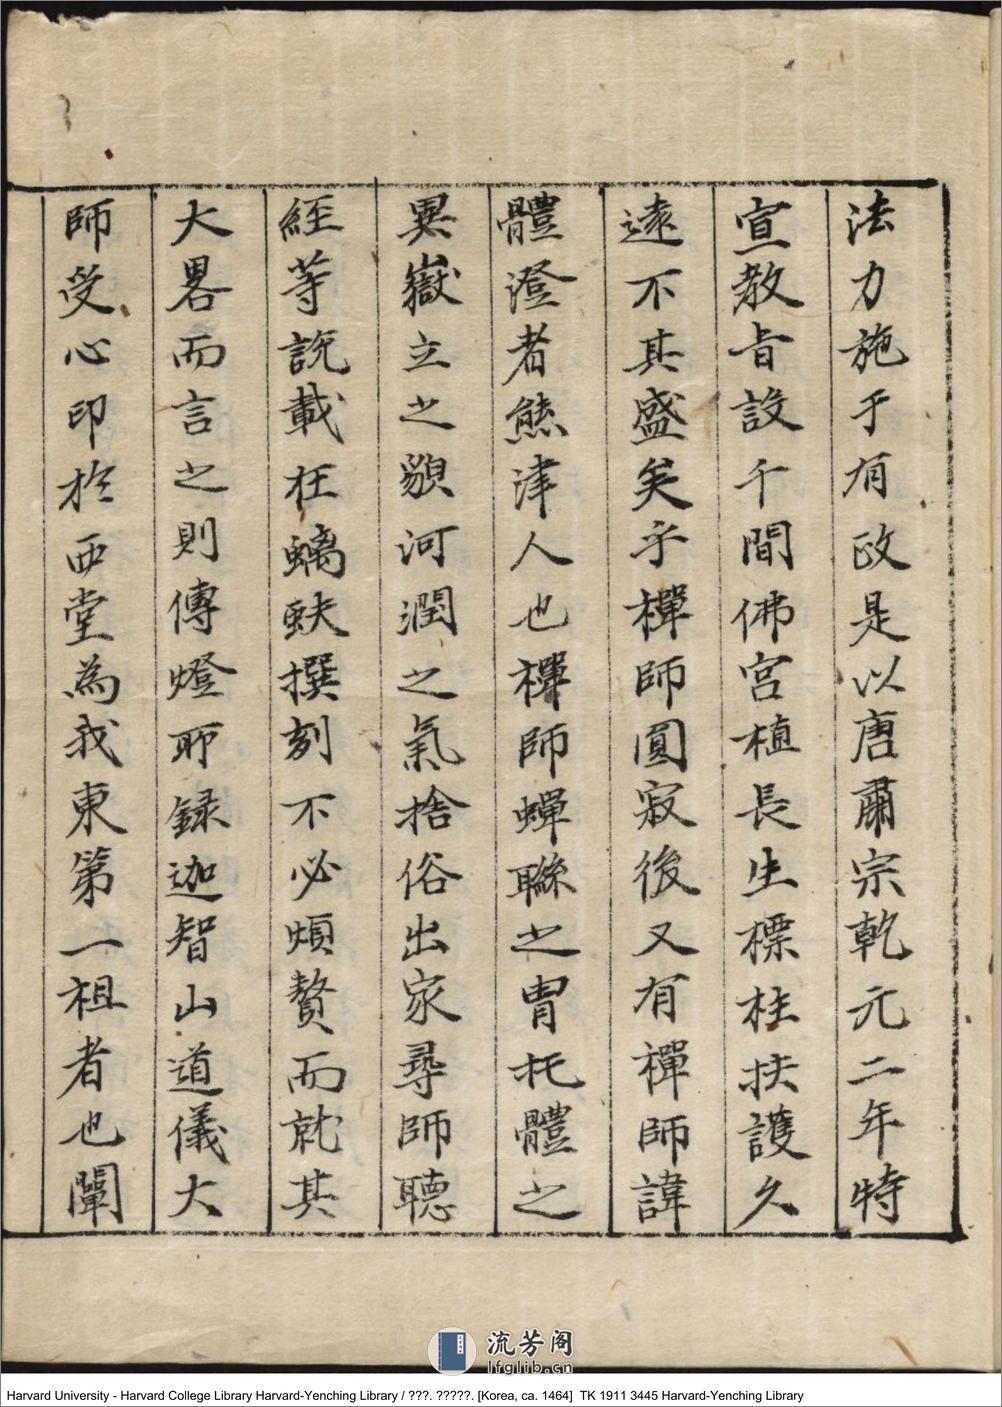 法力施于有政是以唐肅宗乾元二年特
宣教旨設千間佛宮植長生標柱扶護久
遠不其盛矣乎禪師圓寂後又有禪師諱
體澄者熊津人也禪師蟬聯之胄托體之
異嶽立之貌河潤之氣捨俗出家尋師聽
經等說載在螭蚨撰刻不必煩贅而就其
大畧而言之則傳燈所録迦智山道儀大
師受心印於西堂為我東第一祖者也闡
流芳阁
lfglib.cn
Harvard University - Harvard College Library Harvard-Yenching Library / ???. ?????. [Korea, ca. 1464] TK 1911 3445 Harvard-Yenching Library